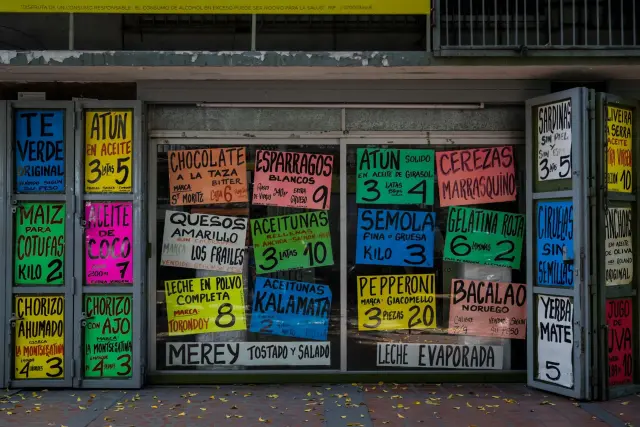 TE
VERDE
ORIGINAL
ATUN
EN ACEITE
3 LATAS 5
MAIZ
PARA
COTUFAS
KILO 2
ACEITE
DE
COCO
7
CHORIZO
AHUMADO
LA MONTSERRATINA
4 3
CHORIZO
CON AJO
LA MONTSERRATINA
4 3
CHOCOLATE
A LA TAZA
BITTER
MARCA
ST MORITZ 6
ESPARRAGOS
BLANCOS
9
QUESOS
AMARILLO
MARCA
LOS FRAILES
ACEITUNAS
RELLENAS
3 LATAS 10
LECHE EN POLVO
COMPLETA
MARCA
TORONDOY 8
ACEITUNAS
KALAMATA
2
MEREY TOSTADO Y SALADO
ATUN SOLIDO
EN ACEITE DE GIRASOL
3 4
CEREZAS
MARRASQUINO
SEMOLA
FINA o GRUESA
KILO 3
GELATINA ROJA
6 2
PEPPERONI
MARCA: GIACOMELLO
3 PIEZAS 20
BACALAO
NORUEGO
10
LECHE EVAPORADA
SARDINAS
3 5
CIRUELAS
SIN
SEMILLAS
YERBA
MATE
5
OLIVEIRA
LA SIERRA
ACEITE
10
ANCHOAS
EN
ACEITE
DE OLIVA
JUGO
DE
UVA
10